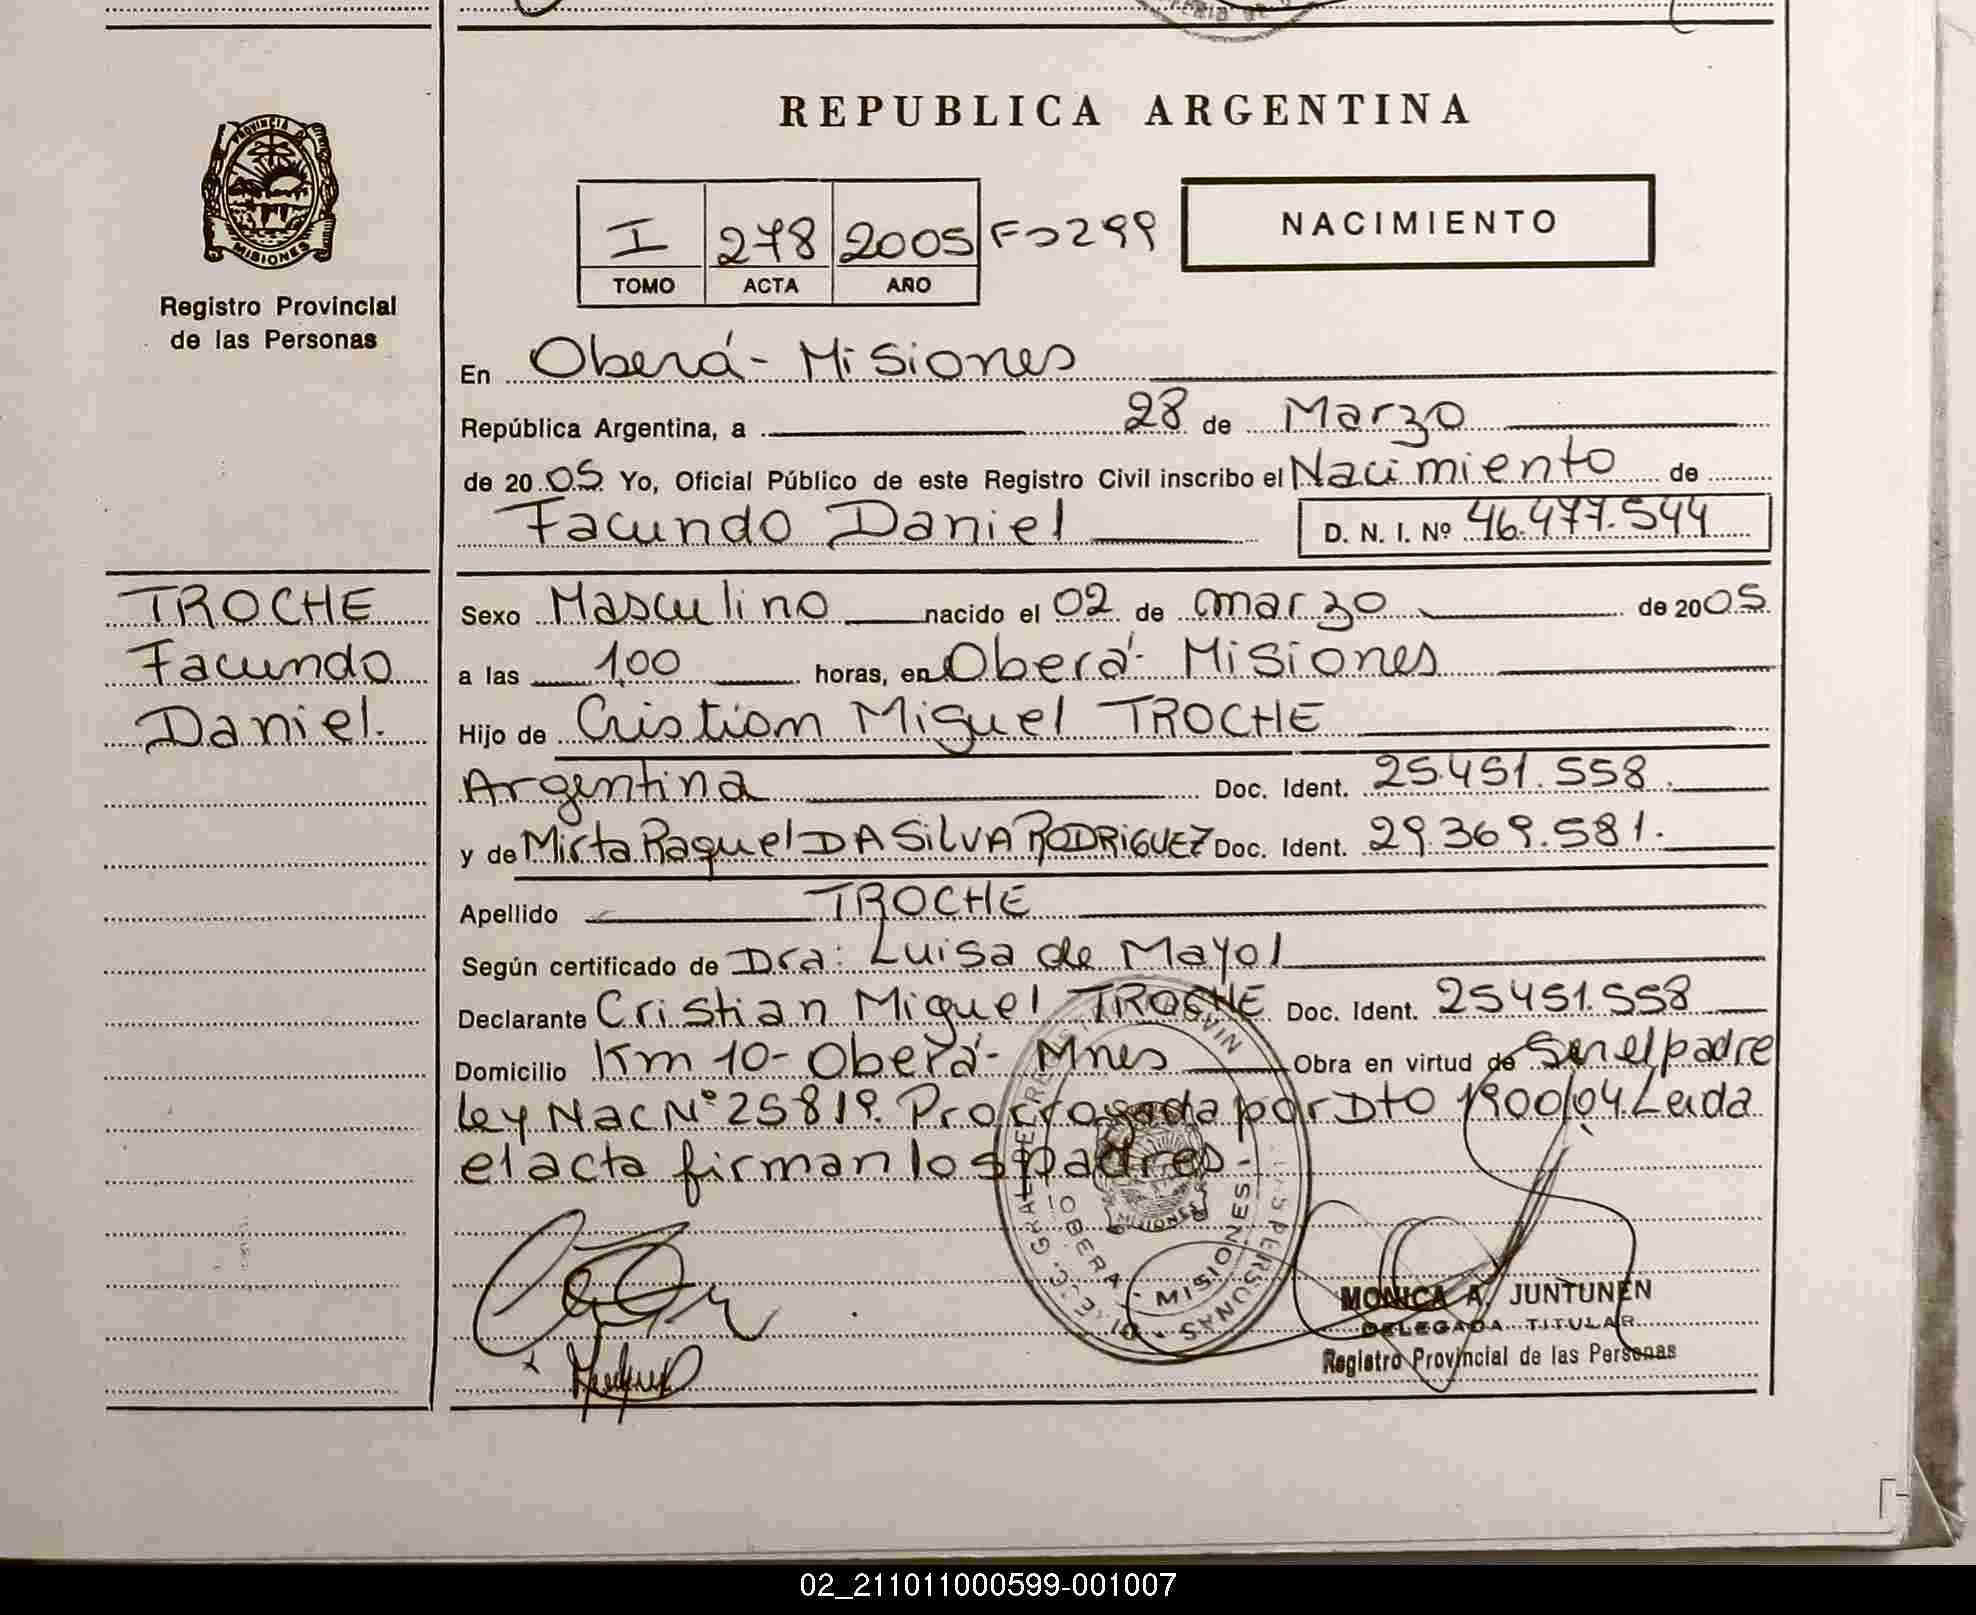 REPUBLICA ARGENTINA
PROVINCIA D
MISIONES
Registro Provincial
de las Personas
I 278 2005 Fo 299
TOMO ACTA AÑO
NACIMIENTO
En Oberá - Misiones
República Argentina, a 28 de Marzo
de 2005 Yo, Oficial Público de este Registro Civil inscribo el Nacimiento de
Facundo Daniel D. N. I. Nº 46.477.544
TROCHE
Facundo
Daniel.
Sexo Masculino nacido el 02 de marzo de 2005
a las 1,00 horas, en Oberá - Misiones
Hijo de Cristian Miguel TROCHE
Argentina Doc. Ident. 25.451.558.
y de Mirta Raquel DA SILVA RODRIGUEZ Doc. Ident. 29.369.581.
Apellido TROCHE
Según certificado de Dra: Luisa de Mayol
Declarante Cristian Miguel TROCHE Doc. Ident. 25451.558
Domicilio Km 10 - Oberá - Mnes Obra en virtud de Ser el padre
ley Nac Nº 25819. Prorrogada por Dto 1900/04. Leida
el acta firman los padres -
OBERA - MISIONES
MONICA A. JUNTUNEN
DELEGADA TITULAR
Registro Provincial de las Personas
02_211011000599-001007